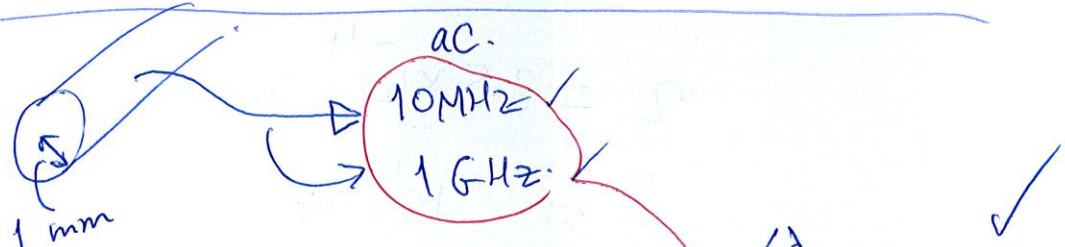 ac.
10MHz
1 GHz.
1 mm